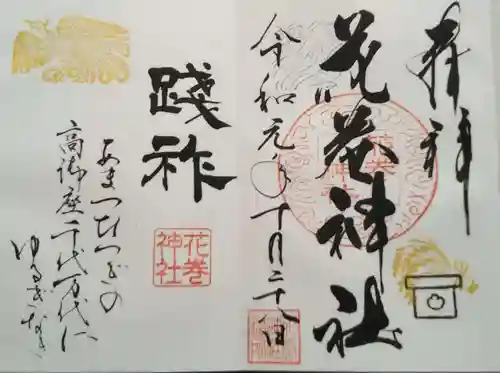 奉拝
花巻神社
令和元年十月二十八日
踐祚
花巻
神社
あまつひつぎの
高御座千代万代に
ゆるぎなき